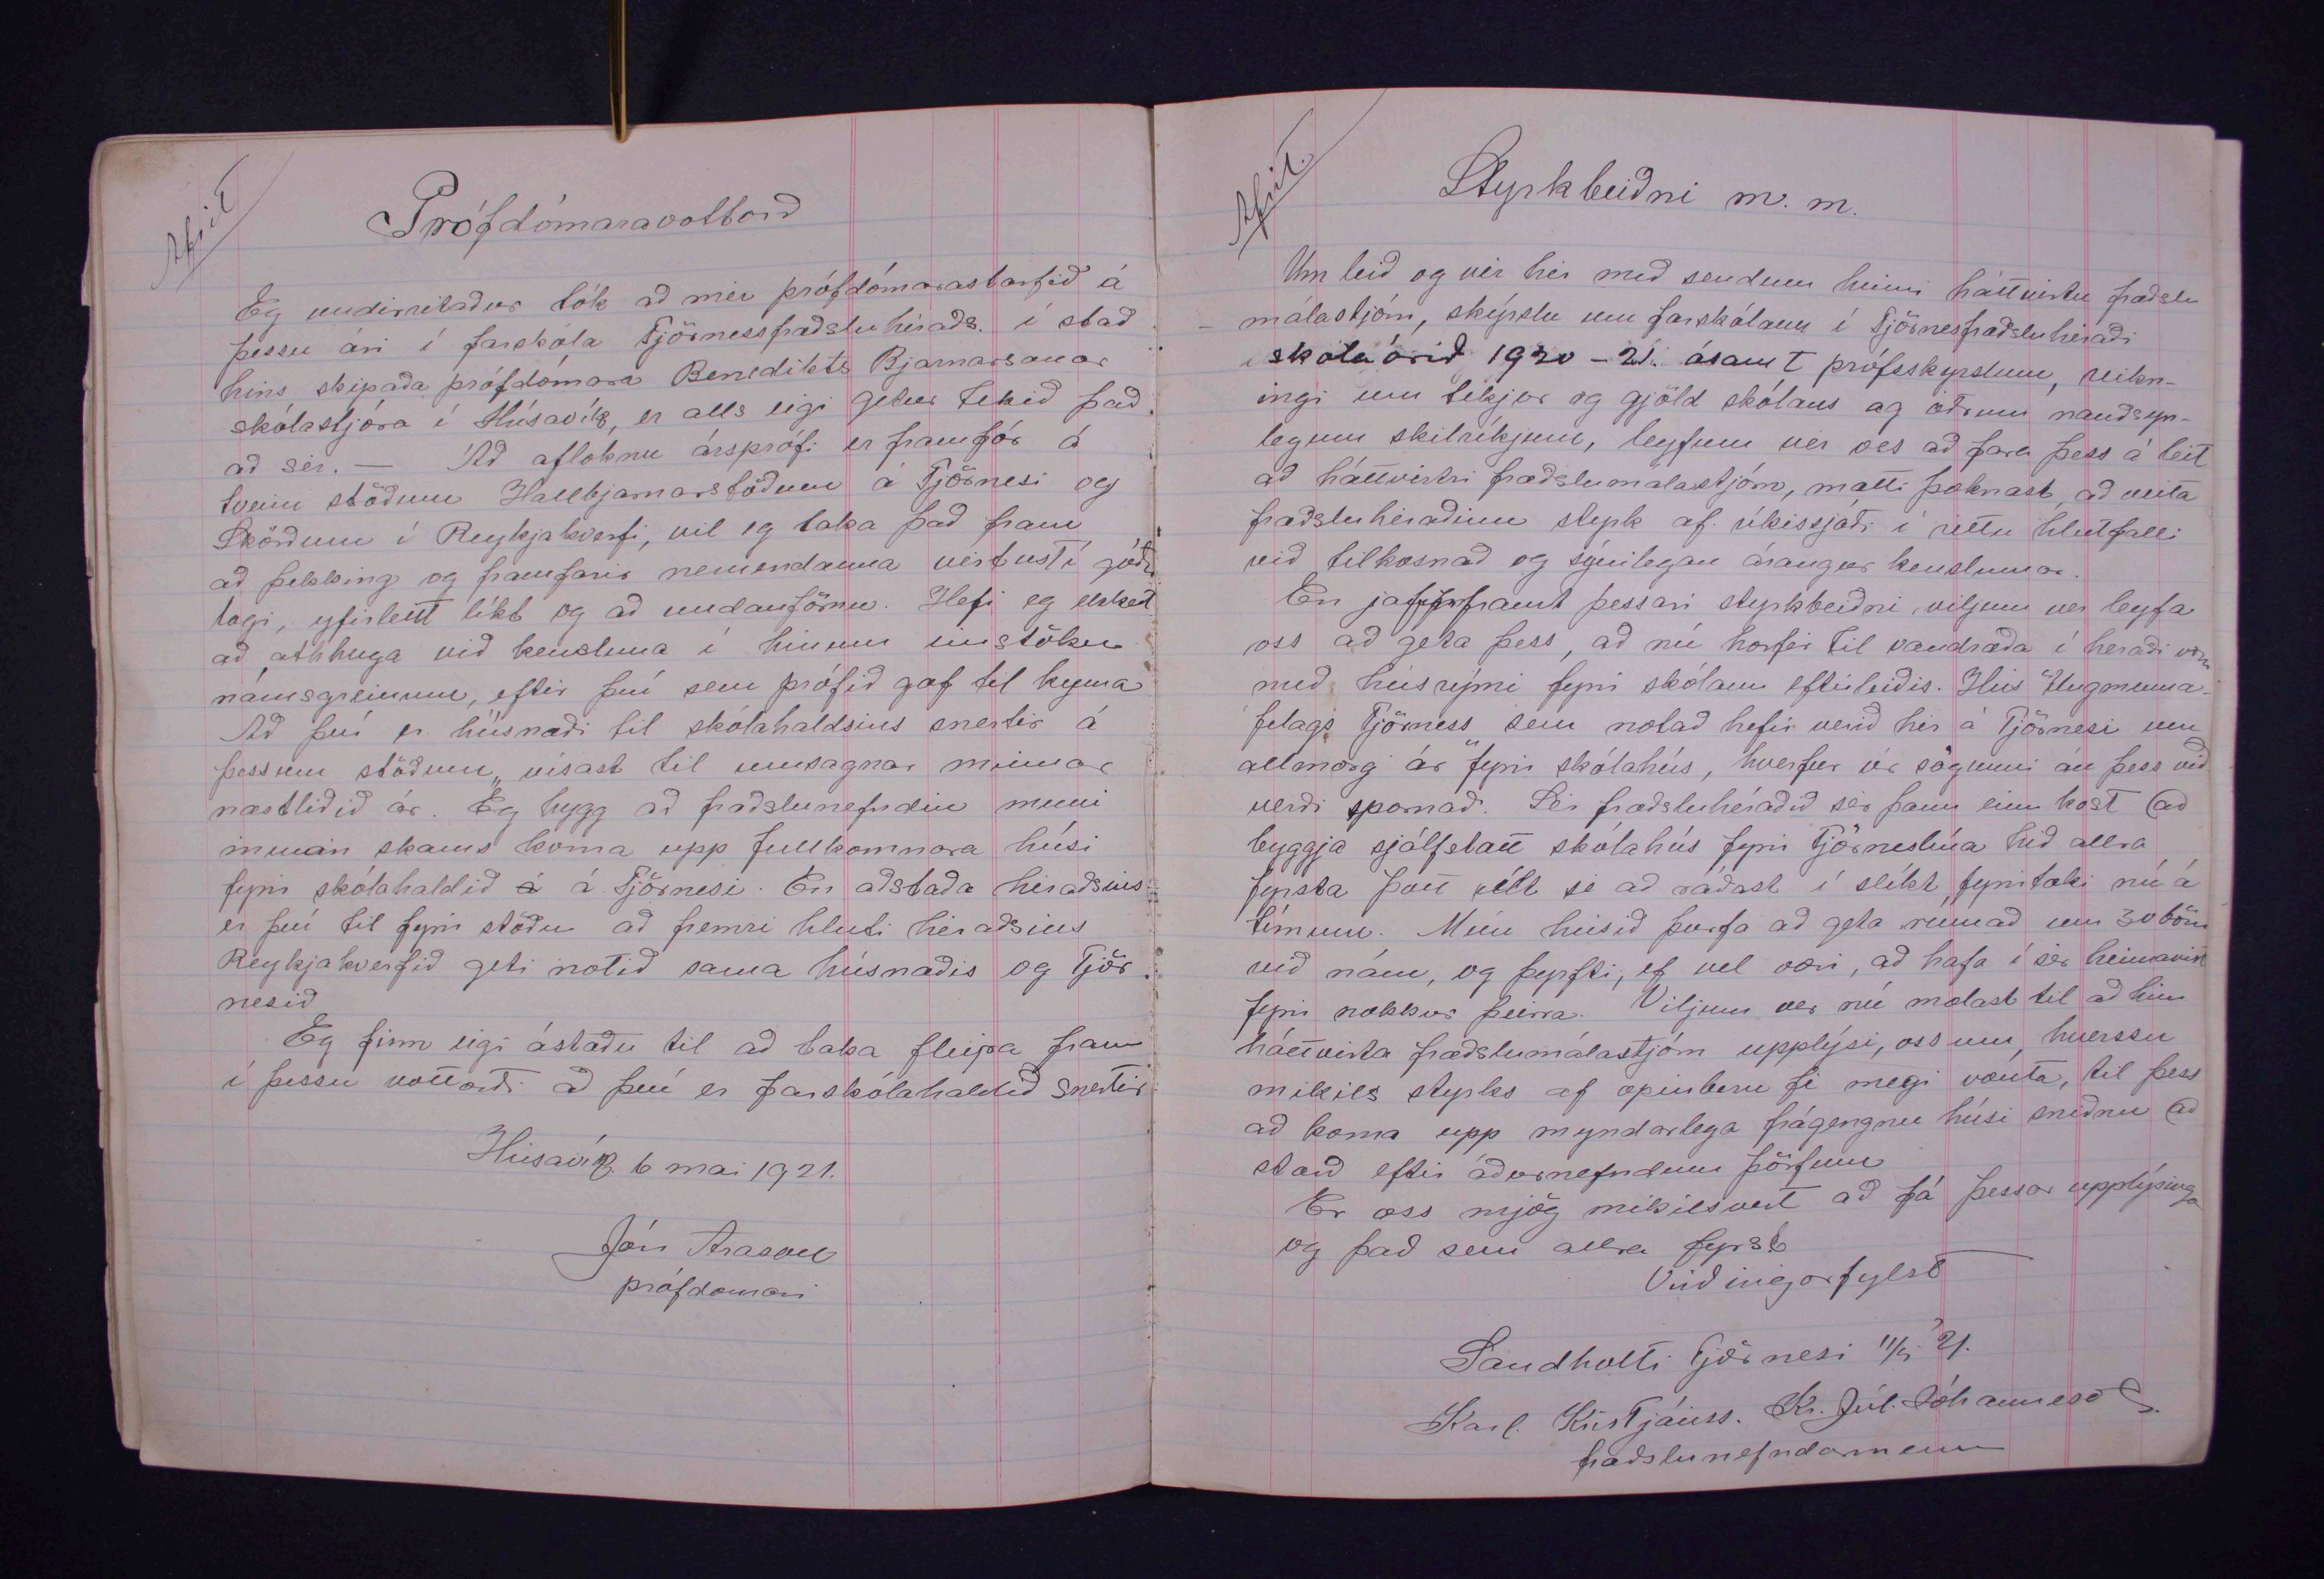 Afrit
Prófdómaravottorð
Eg undirritaður tók að mér prófdómarastarfið á
þessu ári í farskóla Tjörnessfræðsluhéraðs. í stað
hins skipaða prófdómara Benedikts Bjarnarsonar
skólastjóra í Húsavík, er alls eigi getur tekið það
að sér. — Að afloknu ársprófi er framfór á
tveim stöðum Hallbjarnarstöðum á Tjörnesi og
Skörðum í Reykjakverfi, vil eg taka það fram
að þekking og framfarir nemendanna virtust í góðu
lagi, yfirleitt líkt og að undanförnu. Hefi eg ekkert
að athhuga við kensluna í hinum einstöku
námsgreinum, eftir því sem prófið gaf til kynna
Að því er húsnæði til skólahaldsins snertir á
þessum stöðum, vísast til umsagnar minnar
næstliðið ár. Eg hygg að fræðslunefndin muni
innan skams koma upp fullkomnara húsi
fyrir skólahaldið á á Tjörnesi. En aðstaða héraðsins
er því til fyrir stöðu að fremri hluti héraðsins
Reykjakverfið geti notið sama húsnæðis og Tjör
nesið
Eg finn eigi ástæðu til að taka fleira fram
í þessu vottorði að því er farskólahaldið snertir
Húsavík. 6 mai 1921.
Jón Arason
prófdómari
Afrit.
Styrkbeiðni m. m.
Um leið og vér hér með sendum hinni háttvirtu fræðslu
málastjórn, skýrslu um farskólann í Tjörnesfræðsluhéraði
skólaárið 1920-21. ásamt prófsskyrslum, reikn-
ingi um tekjur og gjöld skólans og öðrum nauðsyn-
legum skilríkjum, leyfum vér oss að fara þess á leit
að háttvirtri fræðslumálastjórn, mætti þoknast, að veita
fræðsluhéraðinu styrk af ríkissjóði í réttu hlutfalli
við tilkosnað og sýnilegan árangur kenslunnar.
En jafnframt þessari styrkbeiðni viljum ver leyfa
oss að geta þess, að nú horfir til vandræða í héraði voru
með húsrými fyrir skólann eftirleiðis. Hús "Ungmenna-
félags Tjörness sem notað hefir verið hér á Tjörnesi um
allmörg ár" fyrir skólahús, hverfur úr sögunni án þess við
verði spornað. Sér fræðsluhéraðið sér þann einn kost að
byggja sjálfstætt skólahús fyrir Tjörneslúa hið allra
fyrsta þótt illt sé að ráðast í slíkt fyrirtæki nú á
tímum. Mun húsið þurfa að geta rúmað um 30 börn
við nám, og þyrfti, ef vel væri, að hafa í sér heimavist
fyrir nokkur þeirra. Viljum ver nú mælast til að hin
háttvirta fræðslumálastjórn upplýsi, oss um, hverssu
mikils styrks af opinberu fé megi vænta, til þess
að koma upp myndarlega frágengnu húsi sniðnu að
stærð eftir áðurnefndum þörfum
Er oss mjög mikilsvert að fá þessar upplýsingar
og það sem allra fyrst
Virðingarfylst
Sandholti Tjörnesi 11/5 21.
Karl. Kristjánss. Kr. Júl. Jóhanness.
fræðslunefndarmenn